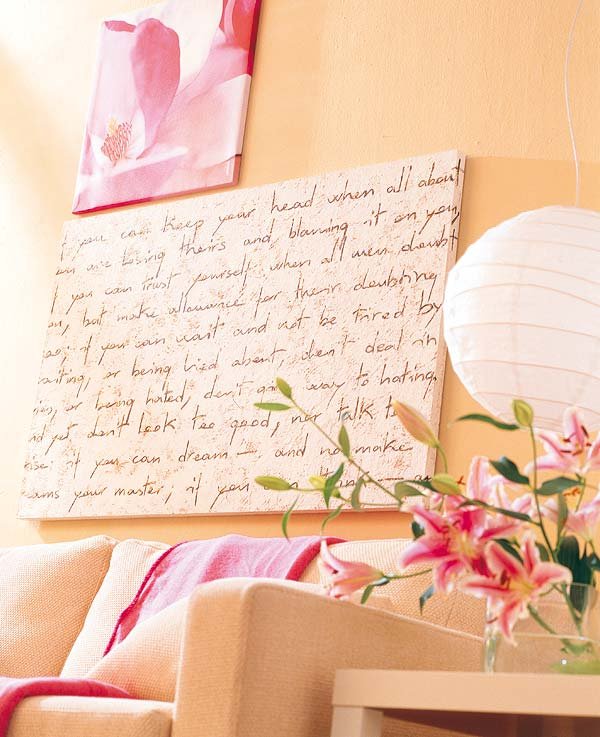 f you can keep your head when all about
are losing theirs and blaming it on you,
f you can trust yourself when all men doubt
ou, but make allowance for their doubting
if you can wait and not be tired by
waiting, or being lied about, don't deal in
ies, or being hated, don't give way to hating,
nd yet don't look too good, nor talk to
ise: if you can dream – and no make
eams your master, if you can thin –